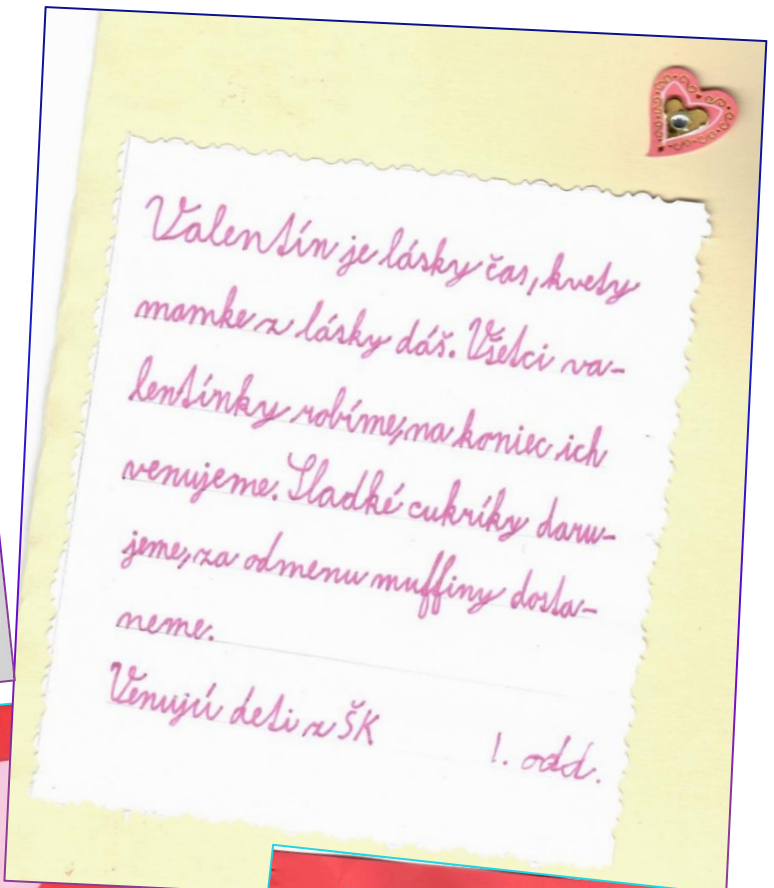 Valentín je lásky čas, kvety
mamke z lásky dáš. Všetci va-
lentínky robíme, na koniec ich
venujeme. Sladké cukríky daru-
jeme, za odmenu muffiny dosta-
neme.
Venujú deti z ŠK 1. odd.